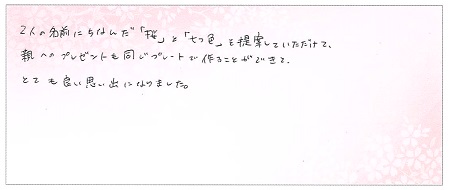 2人の名前にちなんだ「桜」と「七色」を提案していただけて、
親へのプレゼントも同じプレートで作ることができて、
とても良い思い出になりました。